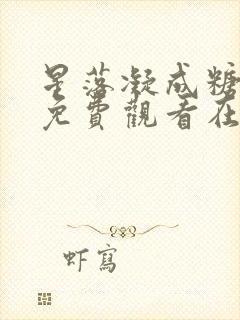 星落凝成糖
免費觀看在
虾寫